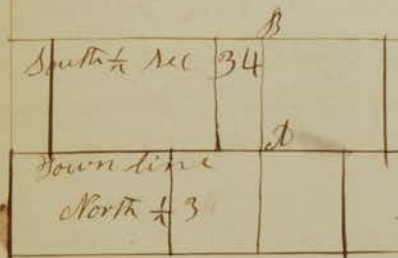 B
South ½ Sec 34
A
Town line
North ½ 3